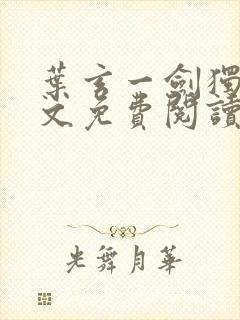 葉玄一劍獨
文免費閱讀
光舞月華